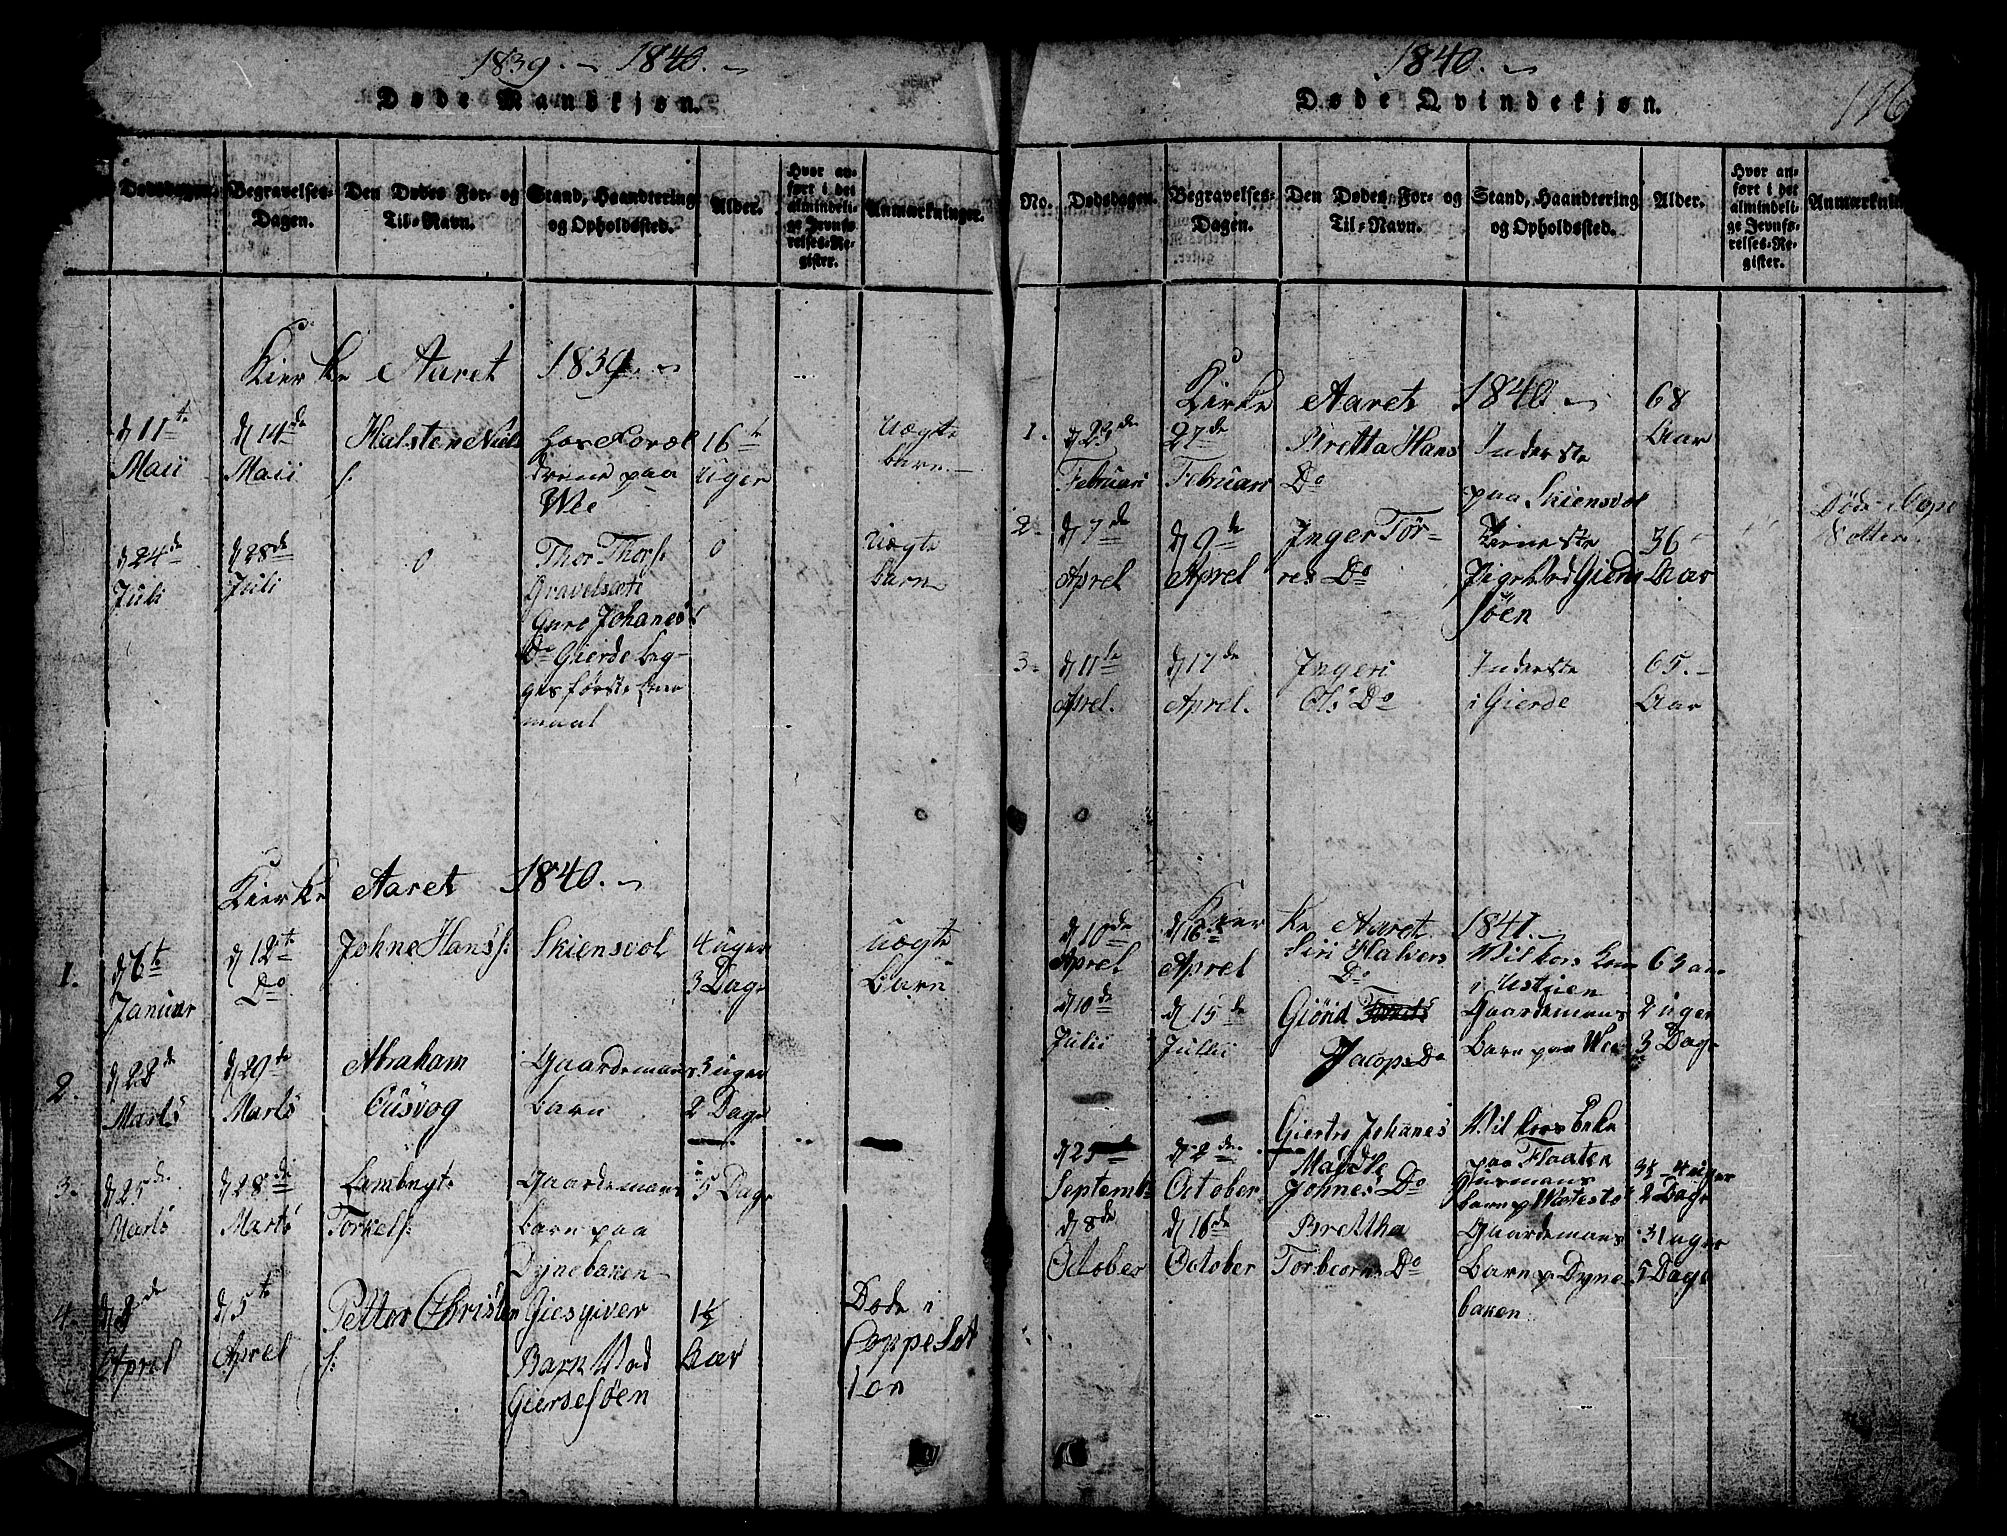 1839. - 1840. -
Døde Mandskjøn.
Dødsdagen.
Begravelses-
Dagen.
Den Dødes For- og
Til-Navn.
Stand, Haandtering
og Opholdssted.
Alder.
Hvor an-
ført i det
almindeli-
ge Jevnfø-
relses-Re-
gister.
Anmærkninger.
Kierke Aaret 1839. -
d 11te
Maii
d 14de
Maii
Halsten Niels
s:
paa
Wee
16te
uger
uægte
barn
d 24de
Juli
d 28de
Juli
0
Thor Thors:
Gravelsæti
Guro Johanes
Do Gierde beg-
ges første
maal
0
uægte
barn
Kierke Aaret 1840. -
1.
d 6te
Januar
d 12te
Do
Johne Hans s:
Skiensvol
4 uger
3 Dage
uægte
barn
2.
d 22de
Marts
d 29te
Marts
Abraham
Gaardemans
barn
3 uger
2 Dage
3.
d 25de
Marts
d 28de
Marts
Torkels:
Gaardemans
barn paa
Dynebaken
5 Dage
4.
d 2de
Aprel
d 5te
Aprel
Petter Christen
s:
Giesgiver
Barn Ved
Gierdesøen
1½
Aar
Døde i
Coppe
1840. -
Døde Qvindekjøn.
116
No.
Dødsdagen.
Begravelses-
Dagen.
Den Dødes For- og
Til-Navn.
Stand, Haandtering
og Opholdssted.
Alder.
Hvor an-
ført i det
almindeli-
ge Jevnfø-
relses-Re-
gister.
Anmærknin
Kirke Aaret 1840. -
1.
d 23de
Februari
27de
Februari
Bretta Hans
Do
Inderste
paa Skiensvol
68
Aar
2.
d 7de
Aprel
d 9de
Aprel
Inger Tør-
res Do
Pige Ved Gierde
søen
36
Aar
Døde
3.
d 11te
Aprel.
d 17de
Aprel.
Ingeri
Ols Do
Inderste
i Gierde
65. -
Aar
Kierke Aaret 1841. -
d 10de
Aprel
d 16de
Aprel
Siri Halvers
Do
i
63 aar
d 10de
Julii
d 15de
Julii
Giørid
Jacops Do
Gaardemans
Barn paa Wee
2 uger
3 Dage
d 25
Septemb
d 2de
October
Giertru Johanes
Johnes Do
paa Flaaten
barn
4 uger
2 Dage
d 8de
October
d 16de
October
Brettha
Torbiorns Do
Gaardemans
Barn p Dyne
baken
31 uger
5 Dage